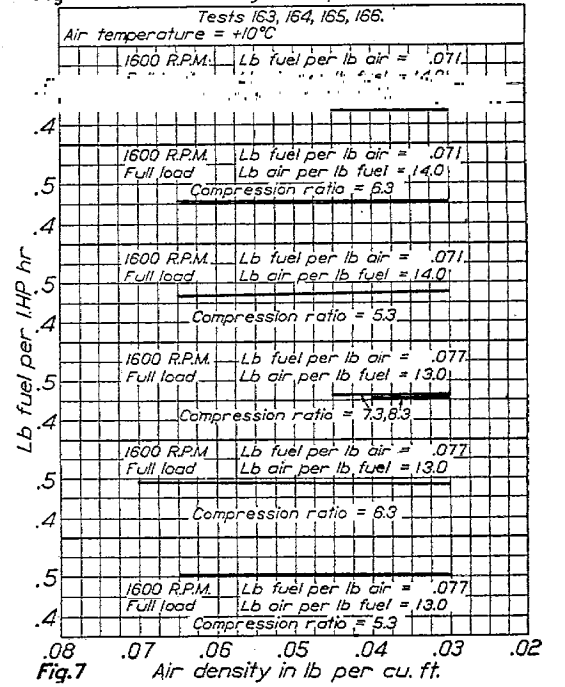 Tests 163, 164, 165, 166.
Air temperature = +10°C
1600 R.P.M. Lb fuel per lb air = .071
.4
1600 R.P.M. Lb fuel per lb air = .071
Full load Lb air per lb fuel = 14.0
.5
Compression ratio = 6.3
.4
1600 R.P.M. Lb fuel per lb air = .071
Full load Lb air per lb fuel = 14.0
.5
Compression ratio = 5.3
.4
1600 R.P.M. Lb fuel per lb air = .077
Full load Lb air per lb fuel = 13.0
.5
Compression ratio = 7.3,8.3
.4
1600 R.P.M. Lb fuel per lb air = .077
Full load Lb air per lb fuel = 13.0
.5
Compression ratio = 6.3
.4
.5
1600 R.P.M. Lb fuel per lb air = .077
Full load Lb air per lb fuel = 13.0
.4
Compression ratio = 5.3
Lb fuel per I.HP hr
.08 .07 .06 .05 .04 .03 .02
Fig.7 Air density in lb per cu. ft.